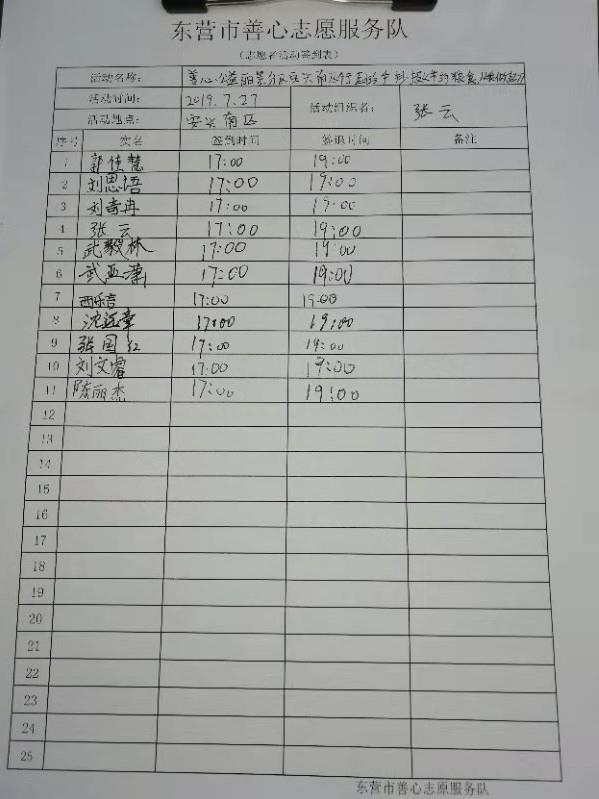 东营市善心志愿服务队
（志愿者活动签到表）
活动名称： 善心公益丽景分队安兴南区行
活动时间： 2019.7.27 活动组织者： 张云
活动地点： 安兴南区
序号 实名 签到时间 签退时间 备注
1 郭佳慧 17:00 19:00
2 刘思语 17:00 19:00
3 刘奇冉 17:00 19:00
4 张云 17:00 19:00
5 武毅林 17:00 19:00
6 武亚潇 17:00 19:00
7 17:00 19:00
8 沈 17:00 19:00
9 张国红 17:00 19:00
10 刘文睿 17:00 19:00
11 陈丽杰 17:00 19:00
12
13
14
15
16
17
18
19
20
21
22
23
24
25
东营市善心志愿服务队